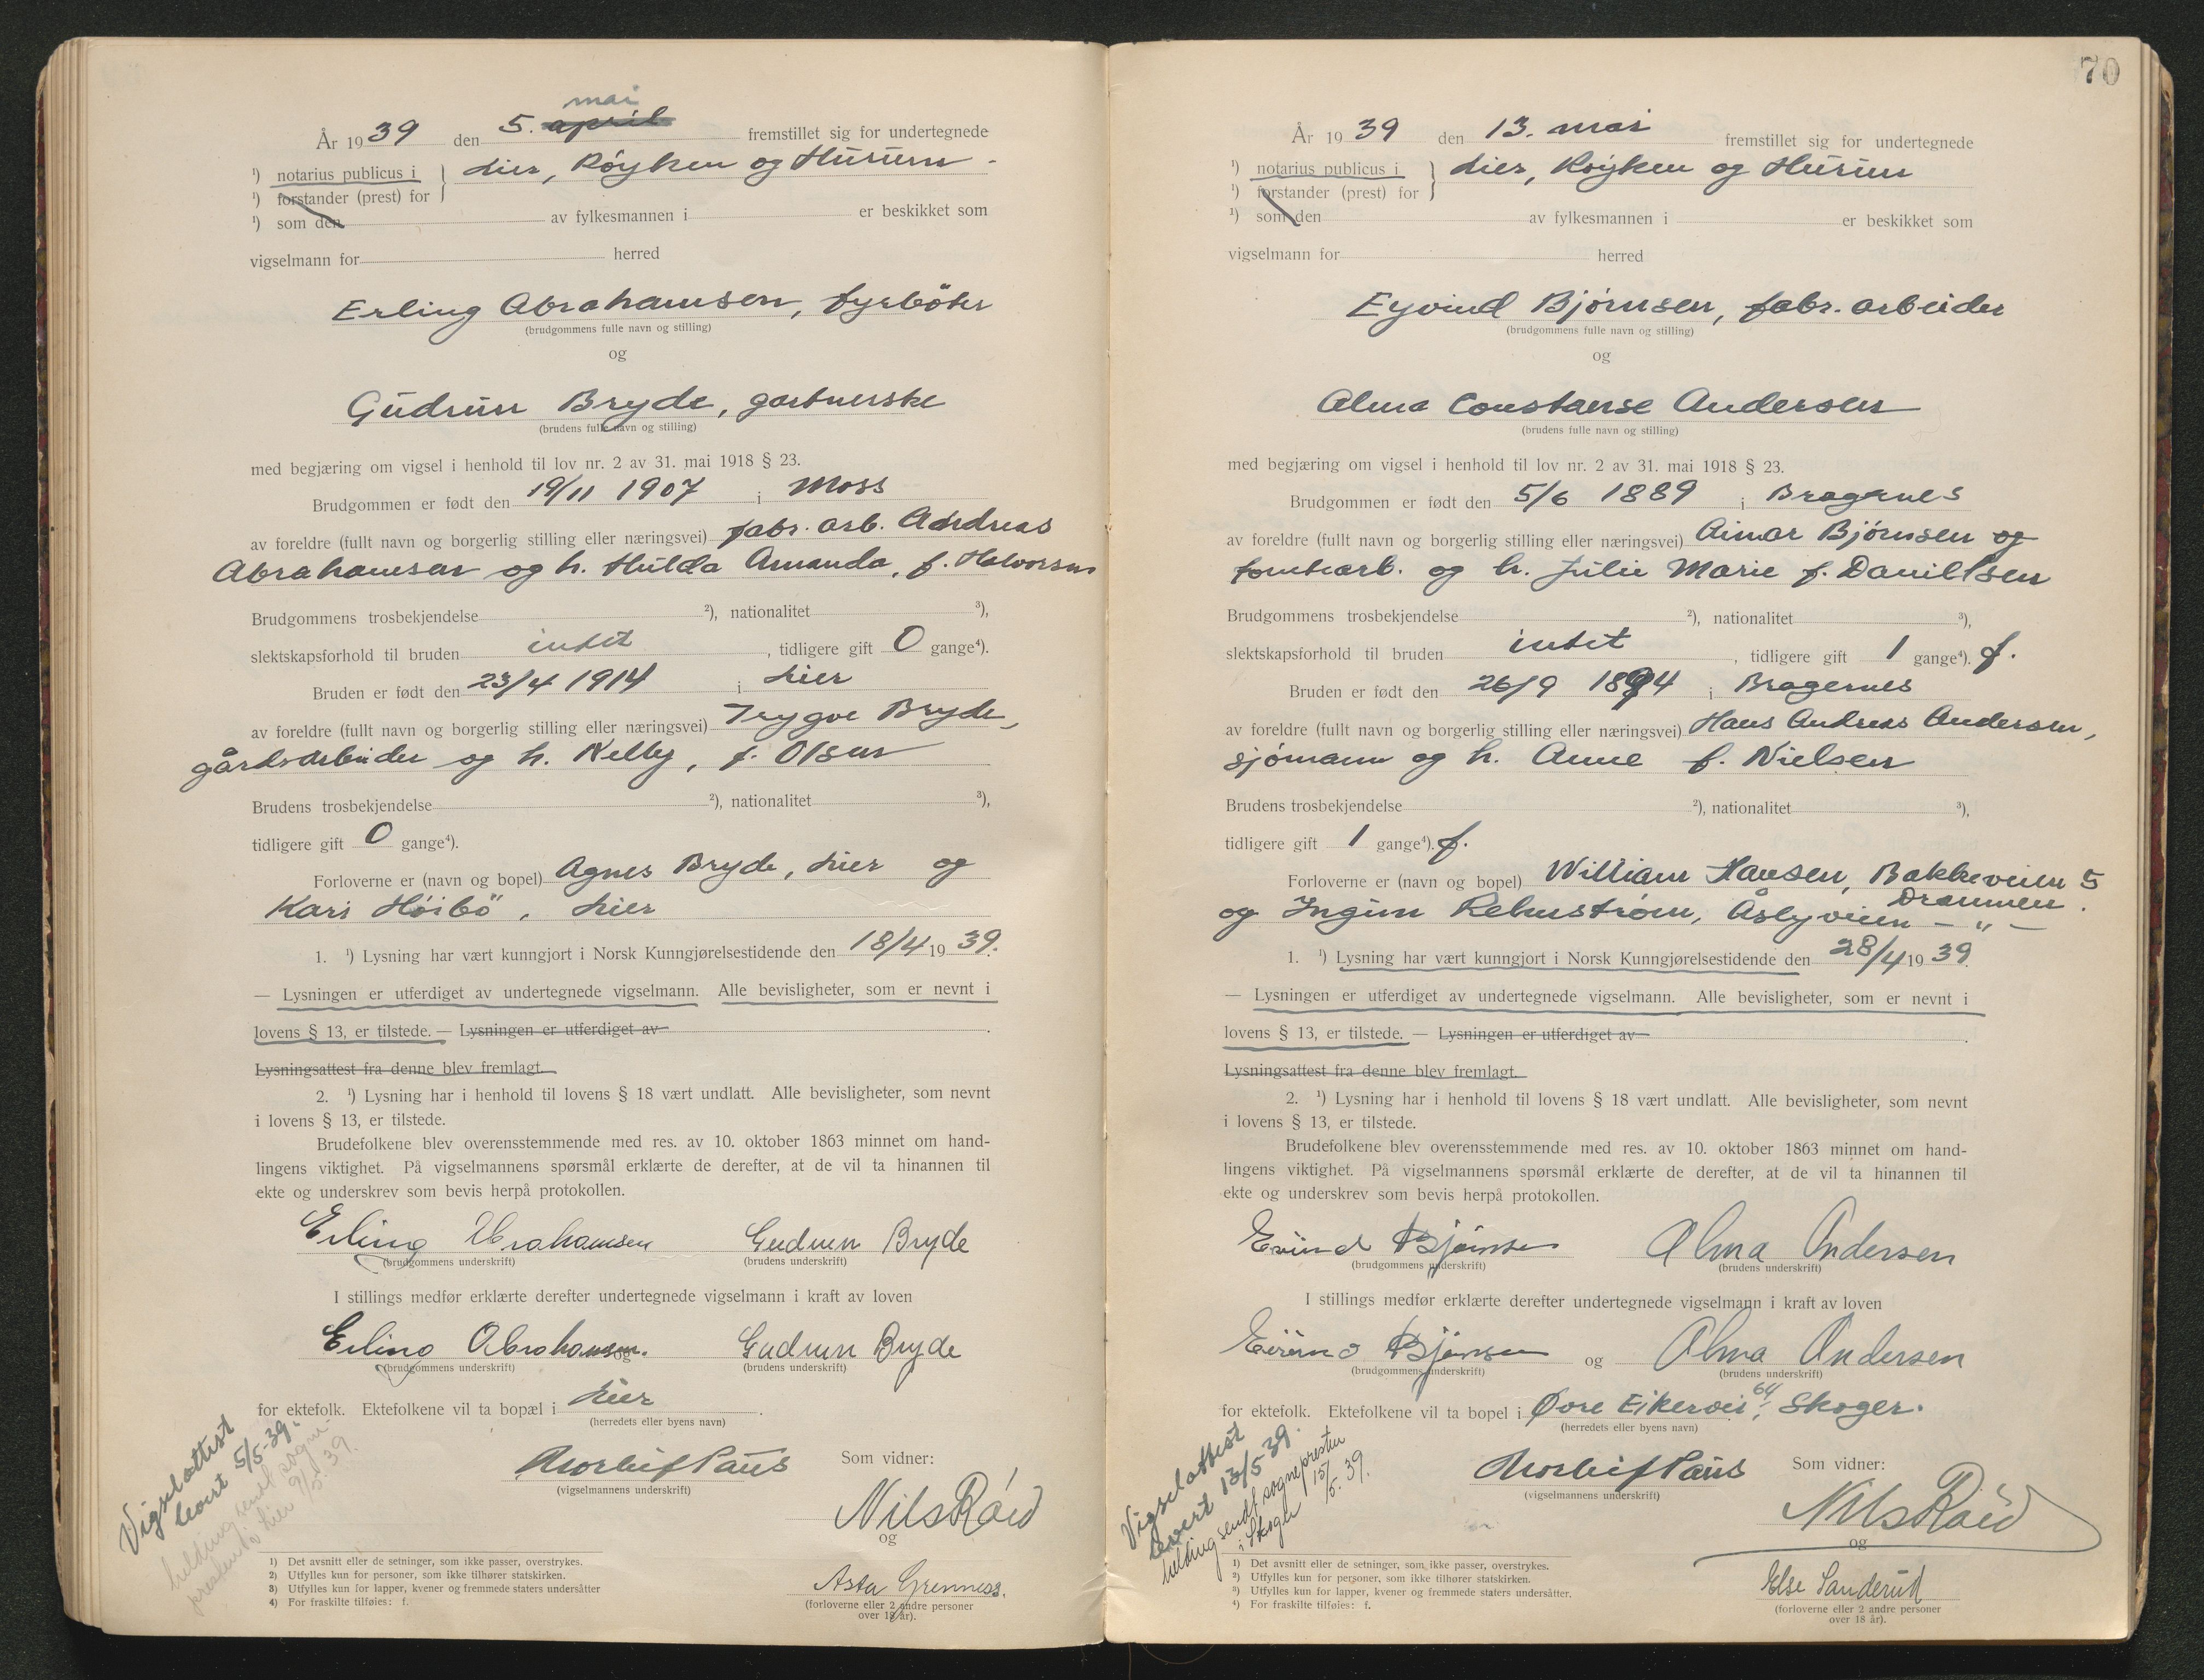 mai
År 1939 den 5. april fremstillet sig for undertegnede
¹) notarius publicus i } Lier, Röyken og Hurum.
¹) forstander (prest) for
¹) som den av fylkesmannen i er beskikket som
vigselmann for herred
Erling Abrahamsen, fyrböter
(brudgommens fulle navn og stilling)
og
Gudrun Bryde, gartnerske
(brudens fulle navn og stilling)
med begjæring om vigsel i henhold til lov nr. 2 av 31. mai 1918 § 23.
Brudgommen er født den 19/11 1907 i Moss
av foreldre (fullt navn og borgerlig stilling eller næringsvei) fabr. arb. Andreas
Abrahamsen og h. Hulda Amanda, f. Halvorsen
Brudgommens trosbekjendelse ²), nationalitet ³),
slektskapsforhold til bruden intet, tidligere gift 0 gange⁴).
Bruden er født den 23/4 1914 i Lier
av foreldre (fullt navn og borgerlig stilling eller næringsvei) Trygve Bryde,
gårdsarbeider og h. Kelly, f. Olsen
Brudens trosbekjendelse ²), nationalitet ³),
tidligere gift 0 gange⁴).
Forloverne er (navn og bopel) Agnes Bryde, Lier og
Kari Höibö, Lier
1. ¹) Lysning har vært kunngjort i Norsk Kunngjørelsestidende den 18/4 1939.
— Lysningen er utferdiget av undertegnede vigselmann. Alle bevisligheter, som er nevnt i
lovens § 13, er tilstede. — Lysningen er utferdiget av .
Lysningsattest fra denne blev fremlagt.
2. ¹) Lysning har i henhold til lovens § 18 vært undlatt. Alle bevisligheter, som nevnt
i lovens § 13, er tilstede.
Brudefolkene blev overensstemmende med res. av 10. oktober 1863 minnet om hand-
lingens viktighet. På vigselmannens spørsmål erklærte de derefter, at de vil ta hinannen til
ekte og underskrev som bevis herpå protokollen.
Erling Abrahamsen Gudrun Bryde
(brudgommens underskrift) (brudens underskrift)
I stillings medfør erklærte derefter undertegnede vigselmann i kraft av loven
Erling Abrahamsen. og Gudrun Bryde
(brudgommens underskrift) (brudens underskrift)
for ektefolk. Ektefolkene vil ta bopæl i Lier.
(herredets eller byens navn)
Vigselattest
levert 5/5-39.
melding sendt sogne-
presten i Lier 9/5.39.
Thorleif Paus Som vidner:
(vigselmannens underskrift)
Nils Röed
og
Asta Grenness.
(forloverne eller 2 andre personer
over 18 år).
1) Det avsnitt eller de setninger, som ikke passer, overstrykes.
2) Utfylles kun for personer, som ikke tilhører statskirken.
3) Utfylles kun for lapper, kvener og fremmede staters undersåtter
4) For fraskilte tilføies: f.
70
År 1939 den 13. mai fremstillet sig for undertegnede
¹) notarius publicus i } Lier, Röyken og Hurum
¹) forstander (prest) for
¹) som den av fylkesmannen i er beskikket som
vigselmann for herred
Eyvind Bjørnsen, fabr. arbeider
(brudgommens fulle navn og stilling)
og
Alma Constanse Andersen
(brudens fulle navn og stilling)
med begjæring om vigsel i henhold til lov nr. 2 av 31. mai 1918 § 23.
Brudgommen er født den 5/6 1889 i Bragernes
av foreldre (fullt navn og borgerlig stilling eller næringsvei) Einar Bjørnsen og
tomtearb. og h. Julie Marie f. Danielsen
Brudgommens trosbekjendelse ²), nationalitet ³),
slektskapsforhold til bruden intet, tidligere gift 1 gange⁴). f.
Bruden er født den 26/9 1894 i Bragernes
av foreldre (fullt navn og borgerlig stilling eller næringsvei) Hans Andreas Andersen,
sjømann og h. Anne f. Nielsen
Brudens trosbekjendelse ²), nationalitet ³),
tidligere gift 1 gange⁴). f.
Forloverne er (navn og bopel) William Hansen, Bakkeveien 5
Drammen.
og Ingrun Rehnstrøm, Åslyveien — " —
1. ¹) Lysning har vært kunngjort i Norsk Kunngjørelsestidende den 28/4 1939.
— Lysningen er utferdiget av undertegnede vigselmann. Alle bevisligheter, som er nevnt i
lovens § 13, er tilstede. — Lysningen er utferdiget av .
Lysningsattest fra denne blev fremlagt.
2. ¹) Lysning har i henhold til lovens § 18 vært undlatt. Alle bevisligheter, som nevnt
i lovens § 13, er tilstede.
Brudefolkene blev overensstemmende med res. av 10. oktober 1863 minnet om hand-
lingens viktighet. På vigselmannens spørsmål erklærte de derefter, at de vil ta hinannen til
ekte og underskrev som bevis herpå protokollen.
Eivind Bjørnsen Alma Andersen
(brudgommens underskrift) (brudens underskrift)
I stillings medfør erklærte derefter undertegnede vigselmann i kraft av loven
Eivind Bjørnsen og Alma Andersen
(brudgommens underskrift) (brudens underskrift)
for ektefolk. Ektefolkene vil ta bopel i Øvre Eikervei 64, Skoger.
(herredets eller byens navn)
Vigselattest
levert 13/5-39.
melding sendt sognepresten
i Skoger 15/5.39.
Thorleif Paus Som vidner:
(vigselmannens underskrift)
Nils Röed
og
Else Sanderud
(forloverne eller 2 andre personer
over 18 år).
1) Det avsnitt eller de setninger, som ikke passer, overstrykes.
2) Utfylles kun for personer, som ikke tilhører statskirken.
3) Utfylles kun for lapper, kvener og fremmede staters undersåtter.
4) For fraskilte tilføies: f.